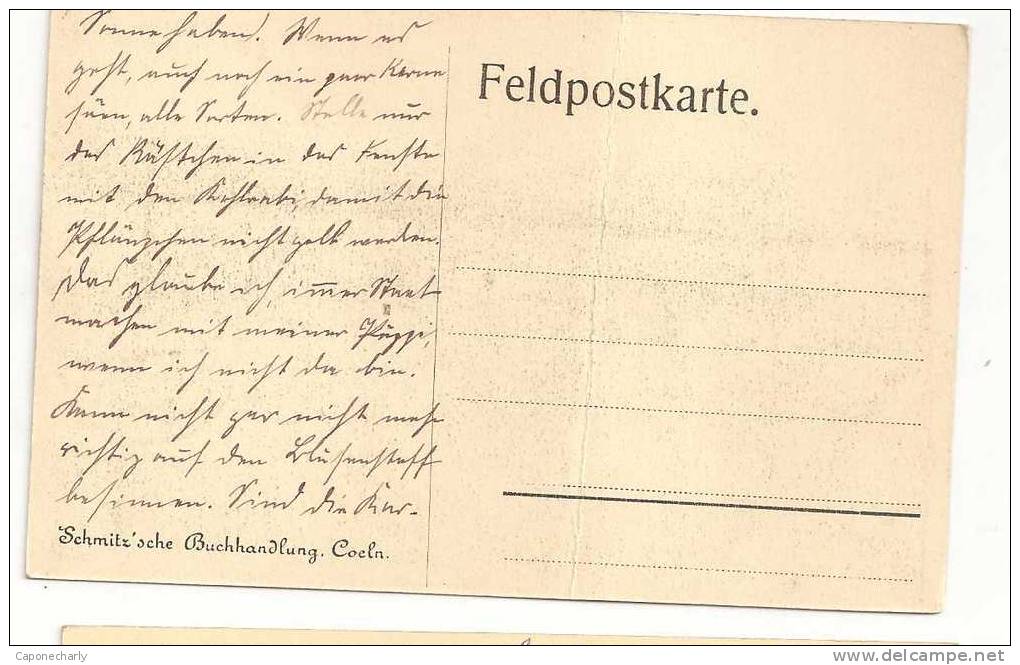 Sonne haben). Wenn es
geht, auch noch ein paar Kerne
säen, alle Sorten. Stelle nur
das Kästchen in das Fenster
mit den Kohlrabi, damit die
Pflänzchen nicht gelb werden.
Das glaube ich, immer Staat
machen mit meiner Püppi,
wenn ich nicht da bin.
Kann nicht gar nicht mehr
richtig auf den Blusenstoff
besinnen. Sind die Kar-
Feldpostkarte.
Schmitz'sche Buchhandlung. Coeln.
Caponecharly
delcampe.net